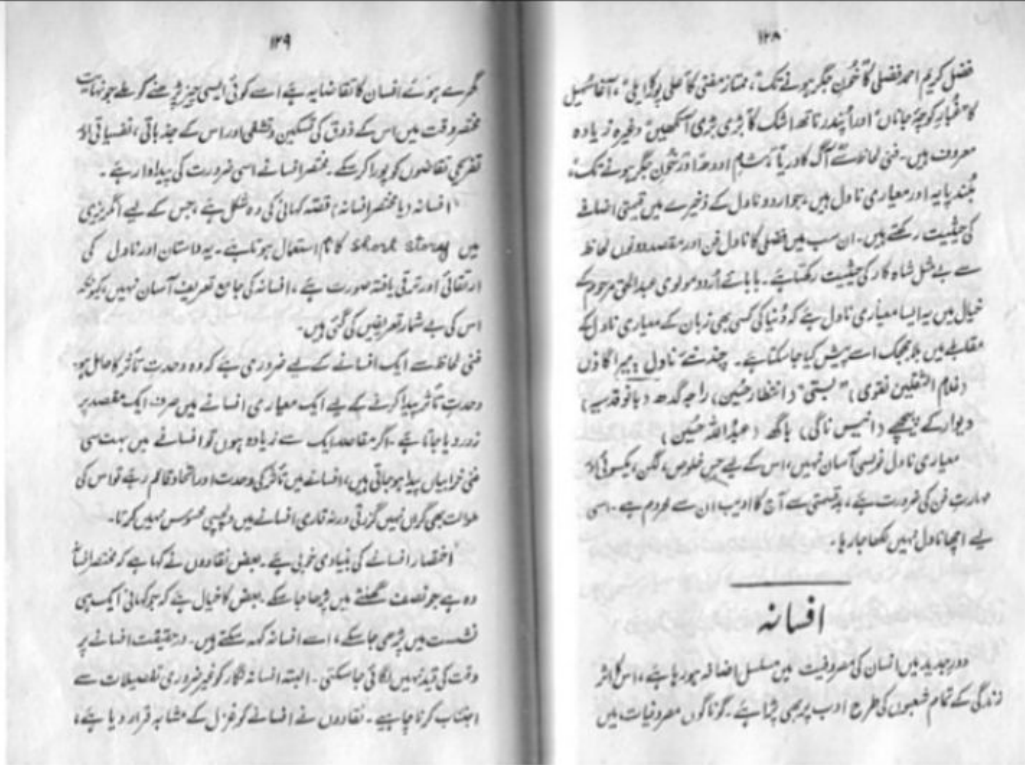 ۱۲۸
فضل کریم احمد فضلی کا "خونِ جگر ہونے تک"، ممتاز مفتی کا "علی پور کا ایلی"، آغا سہیل
کا "غبارِ کوچۂ جاناں" اور اُپندر ناتھ اشک کا "بڑی بڑی آنکھیں" وغیرہ زیادہ
معروف ہیں۔ فنی لحاظ سے "آگ کا دریا"، شام اودھ اور "خونِ جگر ہونے تک"،
بلند پایہ اور معیاری ناول ہیں، جو اردو ناول کے ذخیرے میں قیمتی اضافے
کی حیثیت رکھتے ہیں۔ ان سب میں فضلی کا ناول فن اور مقصد دونوں لحاظ
سے بے مثل شاہ کار کی حیثیت رکھتا ہے۔ بابائے اُردو مولوی عبدالحق مرحوم کے
خیال میں یہ ایسا معیاری ناول ہے کہ دُنیا کی کسی بھی زبان کے معیاری ناول کے
مقابلے میں بلا جھجک اسے پیش کیا جا سکتا ہے۔ چند نئے ناول : میرا گاؤں
(غلام الثقلین نقوی) "بستی" (انتظار حسین)، راجہ گدھ (بانو قدسیہ)
دیوار کے پیچھے (انیس ناگی) باگھ (عبداللہ حسین)
معیاری ناول نویسی آسان نہیں، اس کے لیے جس خلوص، لگن، یکسوئی اور
مہارتِ فن کی ضرورت ہے، بدقسمتی سے آج کا ادیب ان سے محروم ہے۔ اسی
لیے اچھا ناول نہیں لکھا جا رہا۔
افسانہ
دورِ جدید میں انسان کی مصروفیت میں مسلسل اضافہ ہو رہا ہے، اس کا اثر
زندگی کے تمام شعبوں کی طرح ادب پر بھی پڑا ہے۔ گوناگوں مصروفیات میں
۱۲۹
گھرے ہوئے انسان کا تقاضا یہ ہے اسے کوئی ایسی چیز پڑھنے کو ملے جو نہایت
مختصر وقت میں اس کے ذوق کی تسکین و تشفی اور اس کے جذباتی، نفسیاتی اور
تفریحی تقاضوں کو پورا کر سکے۔ مختصر افسانے اسی ضرورت کی پیداوار ہے۔
افسانہ (یا مختصر افسانہ) قصہ کہانی کی وہ شکل ہے، جس کے لیے انگریزی
میں short story کا نام استعمال ہوتا ہے۔ یہ داستان اور ناول کی
ارتقائی اور ترقی یافتہ صورت ہے۔ افسانہ کی جامع تعریف آسان نہیں، کیونکہ
اس کی بے شمار تعریفیں کی گئی ہیں۔
فنی لحاظ سے ایک افسانے کے لیے ضروری ہے کہ وہ وحدتِ تأثر کا حامل ہو۔
وحدتِ تأثر پیدا کرنے کے لیے ایک معیاری افسانے میں صرف ایک مقصد پر
زور دیا جاتا ہے، اگر مقاصد ایک سے زیادہ ہوں تو افسانے میں بہت سی
فنی خرابیاں پیدا ہو جاتی ہیں، افسانے میں تأثر کی وحدت اور اتحاد قائم رہے تو اس کی
طوالت بھی گراں نہیں گزرتی ورنہ قاری افسانے میں دلچسپی محسوس نہیں کرتا۔
اختصار افسانے کی بنیادی خوبی ہے۔ بعض نقادوں نے کہا ہے کہ مختصر افسانہ
وہ ہے جو نصف گھنٹے میں پڑھا جا سکے، بعض کا خیال ہے کہ جو کہانی ایک ہی
نشست میں پڑھی جا سکے، اسے افسانہ کہہ سکتے ہیں۔ درحقیقت افسانے پر
وقت کی قید نہیں لگائی جا سکتی۔ البتہ افسانہ نگار کو غیر ضروری تفصیلات سے
اجتناب کرنا چاہیے۔ نقادوں نے افسانے کو غزل کے مشابہ قرار دیا ہے،